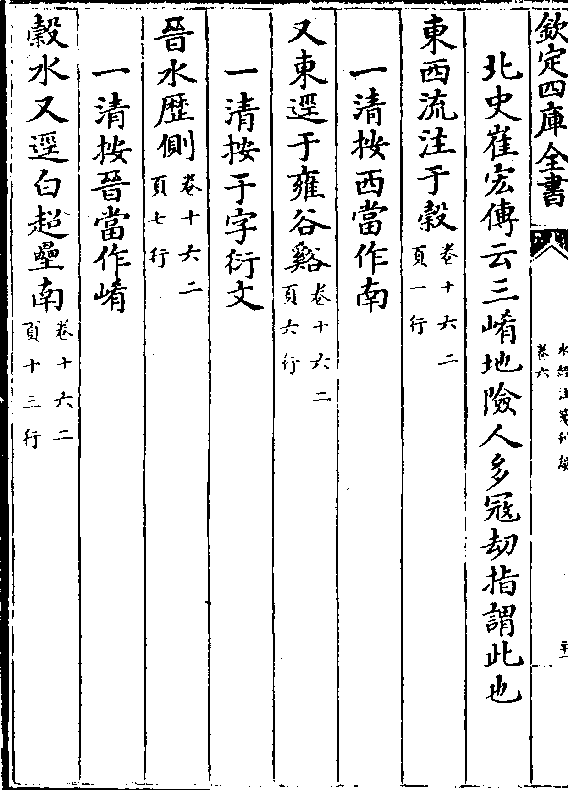 欽定四庫全書
水經注箋刊誤
卷六
北史崔宏傳云三崤地險人多寇刼指謂此也
東西流注于榖卷十六二頁一行
一清按西當作南
又東逕于雍谷谿卷十六二頁六行
一清按于字衍文
晉水歴側卷十六二頁七行
一清按晉當作崤
榖水又逕白超壘南卷十六二頁十三行